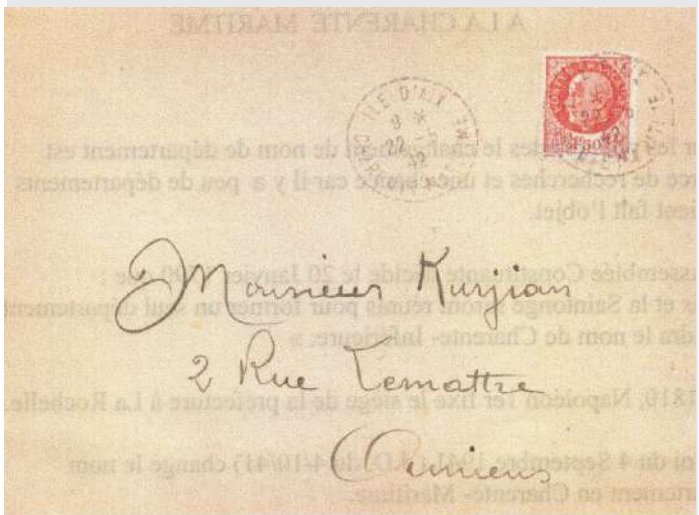 A LA CHARENTE MARITIME
ILE D'AIX
9 *
22 -
42
le changement de nom de département est
rce de recherches et une chance car il y a peu de départements
ient fait l'objet.
ssemblée Constituante décide le 20 Janvier
et la Saintonge seront réunis pour former un seul département
dra le nom de Charente- Inférieure. »
1810, Napoléon 1er fixe le siège de la préfecture à La Rochelle.
du 4 Septembre 1941 (J.O. du 4/10/41) change le nom
artement en Charente- Maritime.
Monsieur Kurjian
2 Rue Lemattre
Amiens